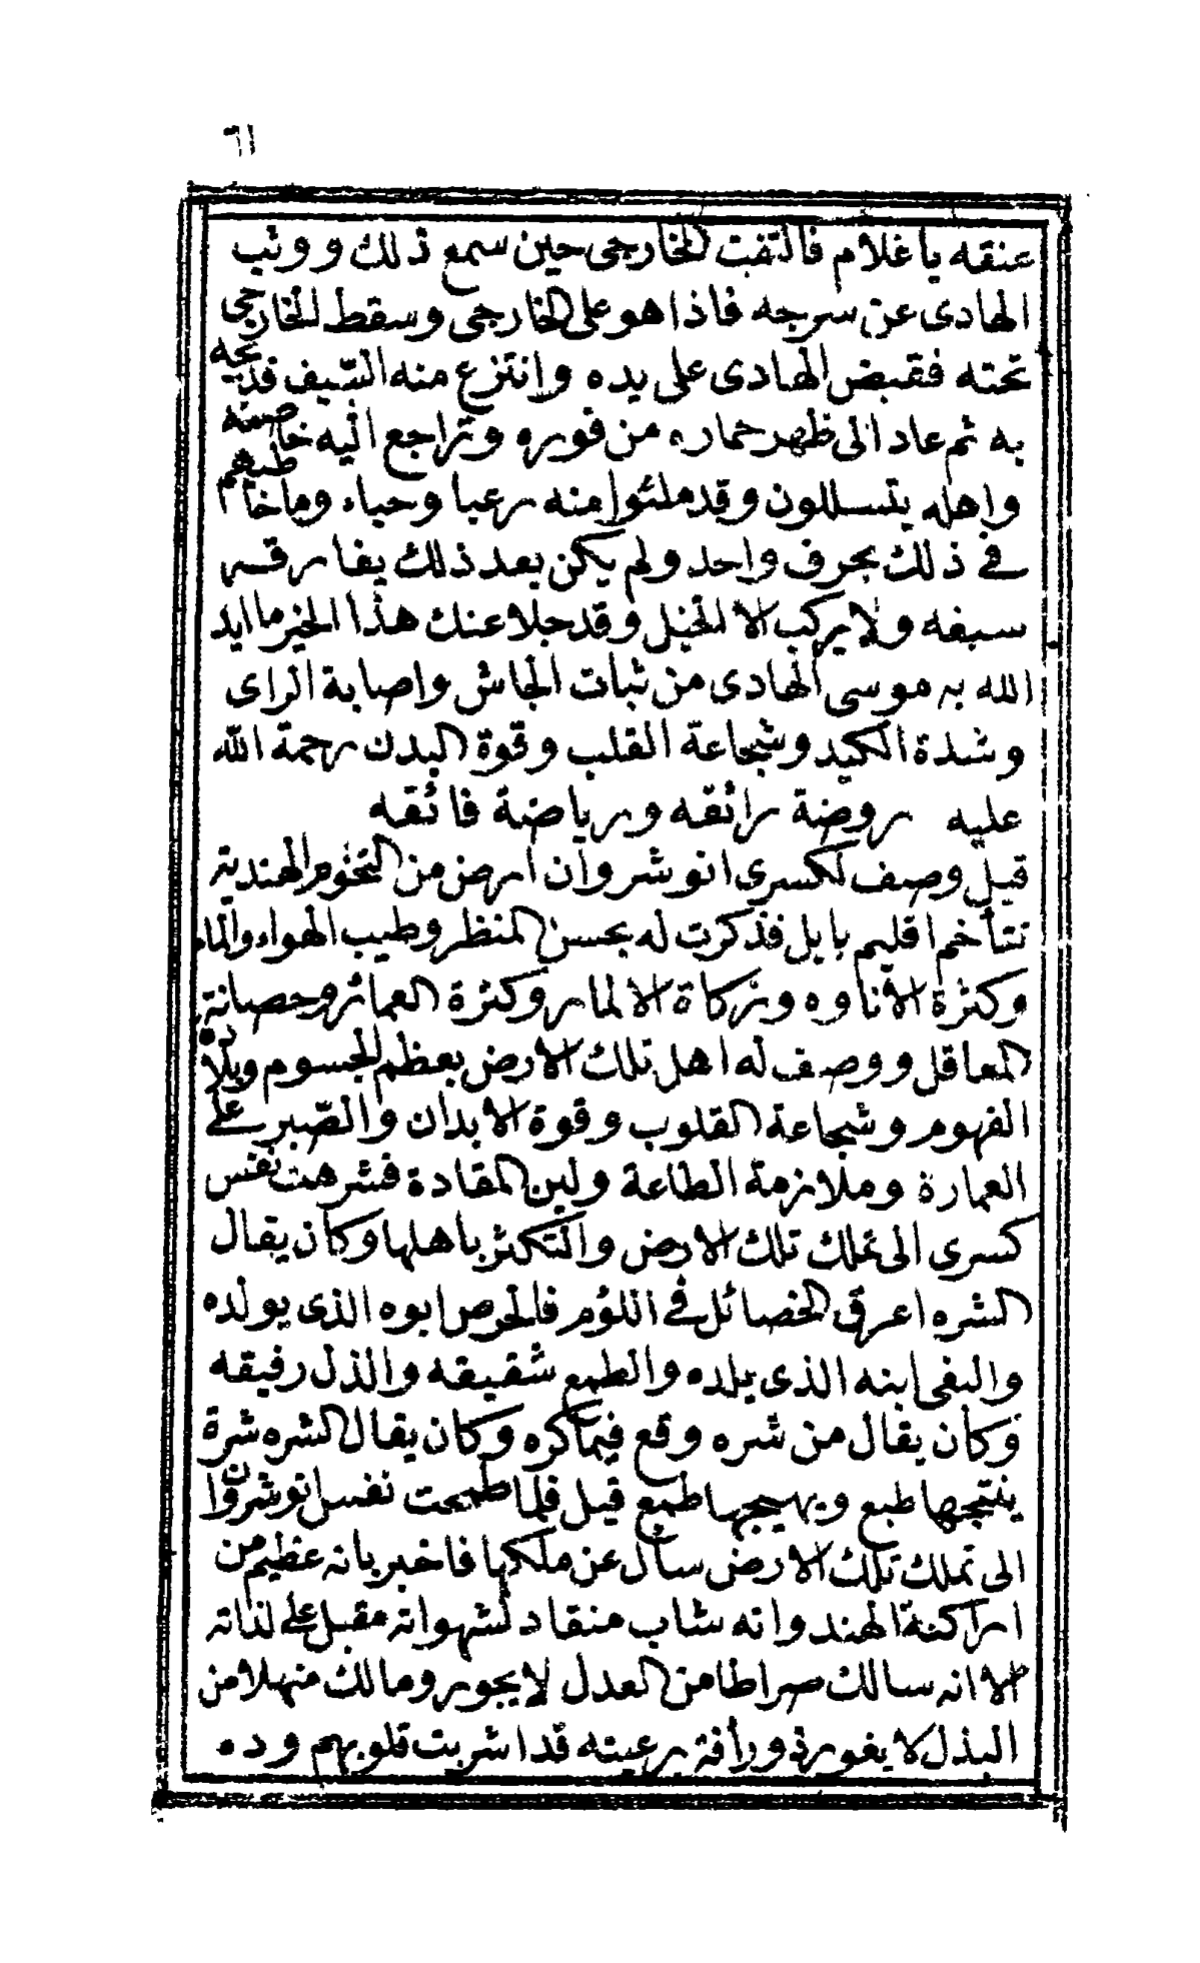 ٦١
عنقه يا غلام فالتفت الخارجى حين سمع ذلك ووثب
الهادى عن سرجه فاذا هو على الخارجى وسقط الخارجى
تحته فقبض الهادى على يده وانتزع منه السّيف فذبحه
به ثم عاد الى ظهر حماره من فوره وتراجع اليه خاصته
واهله يتسللون وقد ملئوا منه رعبا وحياء وما خاطبهم
فى ذلك بحرف واحد ولم يكن بعد ذلك يفارقه
سيفه ولا يركب الا الخيل وقد جلا عنك هذا الخبر ما ايد
الله به موسى الهادى من ثبات الجاش واصابة الراى
وشدة الكيد وشجاعة القلب وقوة البدن رحمة الله
عليه روضة رائقه ورياضة فائقه
قيل وصف لكسرى انوشروان ارض من التخوم الهندية
تتاخم اقليم بابل فذكرت له بحسن المنظر وطيب الهواء والماء
وكثرة الأناوه وزكاة الالمار وكثرة العمائر وحصانة
المعاقل ووصف له اهل تلك الارض بعظم الجسوم وبلادة
الفهوم وشجاعة القلوب وقوة الابدان والصّبر على
العمارة وملازمة الطاعة ولين المقادة فشرهت نفس
كسرى الى تملك تلك الارض والتكثر باهلها وكان يقال
الشره اعرق الخصائل فى اللؤم فالحرص ابوه الذى يولده
والبغى ابنه الذى يلده والطمع شقيقه والذل رفيقه
وكان يقال من شره وقع فيما كره وكان يقال الشره شرة
ينتجها طبع ويهيجها طمع قيل فلما طمحت نفس انوشروان
الى تملك تلك الارض سأل عن ملكها فاخبر بانه عظيم من
اراكنة الهند وانه شاب منقاد لشهواته مقبل على لذاته
الا انه سالك صراطا من العدل لا يجور ومالك منهلا من
البذل لا يغور ذو رأفة برعيته قد اشربت قلوبهم وده